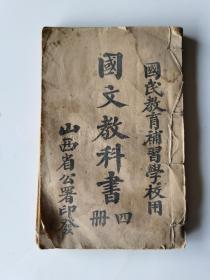 國民教育補習學校用
國文教科書
四冊
山西省公署印發